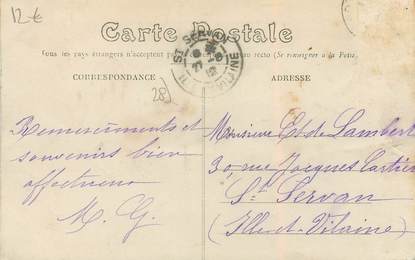 12€
Carte Postale
Tous les pays étrangers n'acceptent pas recto (Se renseigner à la Poste)
CORRESPONDANCE
ADRESSE
ST SERVAN
28)
Remerciements et
souvenirs bien
affectueux
M. G.
Monsieur Et. de Lambert
30, rue Jacques Cartier
St Servan
(Ille-et-Vilaine)